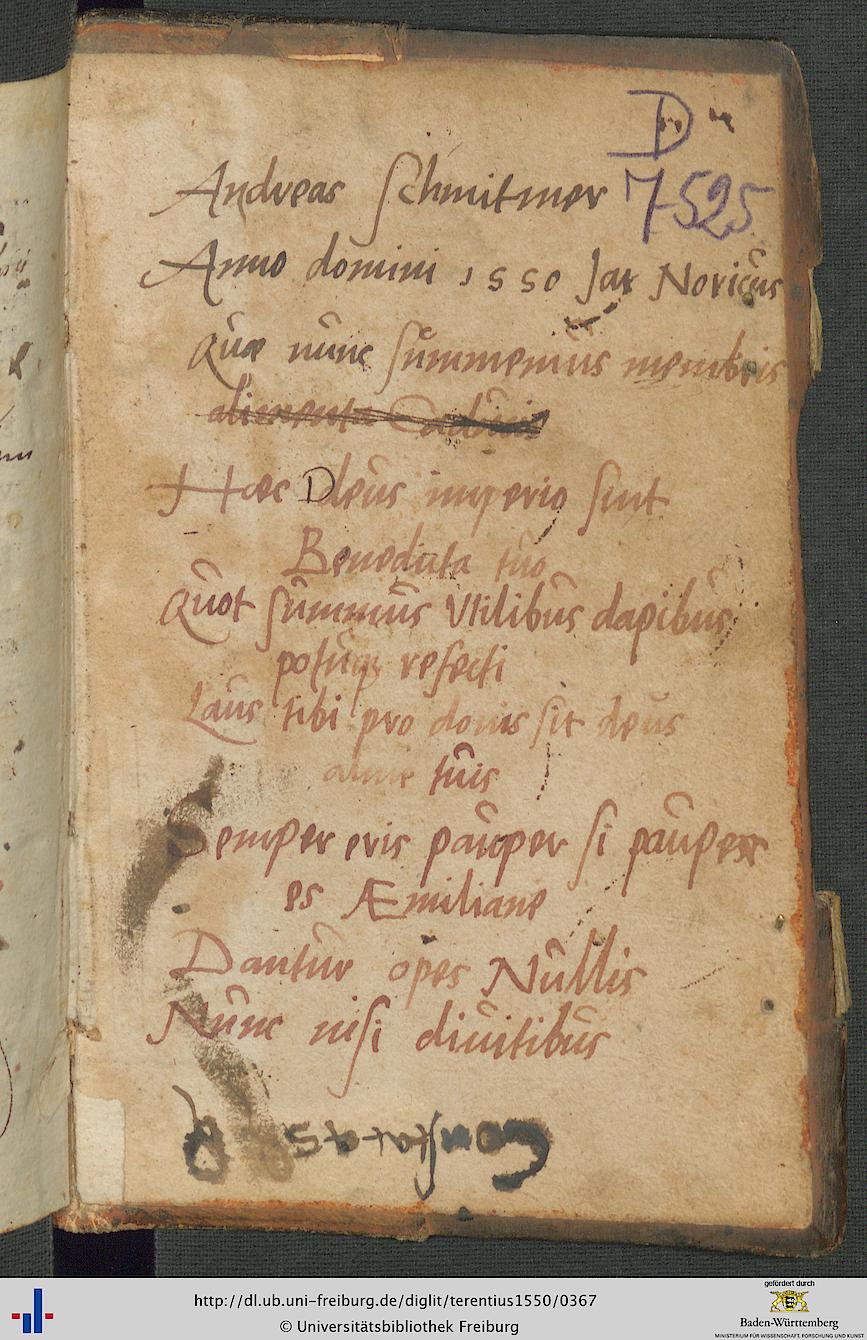 D
7525
Andreas Schmitmer
Anno domini 1550 Jar Noricus
Quae nunc summemus membris
alimenta
Haec Deus imperio sint
Benedicta tuo
Quot summus Vtilibus dapibus
potuq; refecti
Laus tibi pro donis sit deus
alme tuis
Semper eris pauper si pauper
es Æmiliane
Dantur opes Nullis
Nunc nisi diuitibus
Constat
http://dl.ub.uni-freiburg.de/diglit/terentius1550/0367
© Universitätsbibliothek Freiburg
gefördert durch
Baden-Württemberg
MINISTERIUM FÜR WISSENSCHAFT, FORSCHUNG UND KUNST